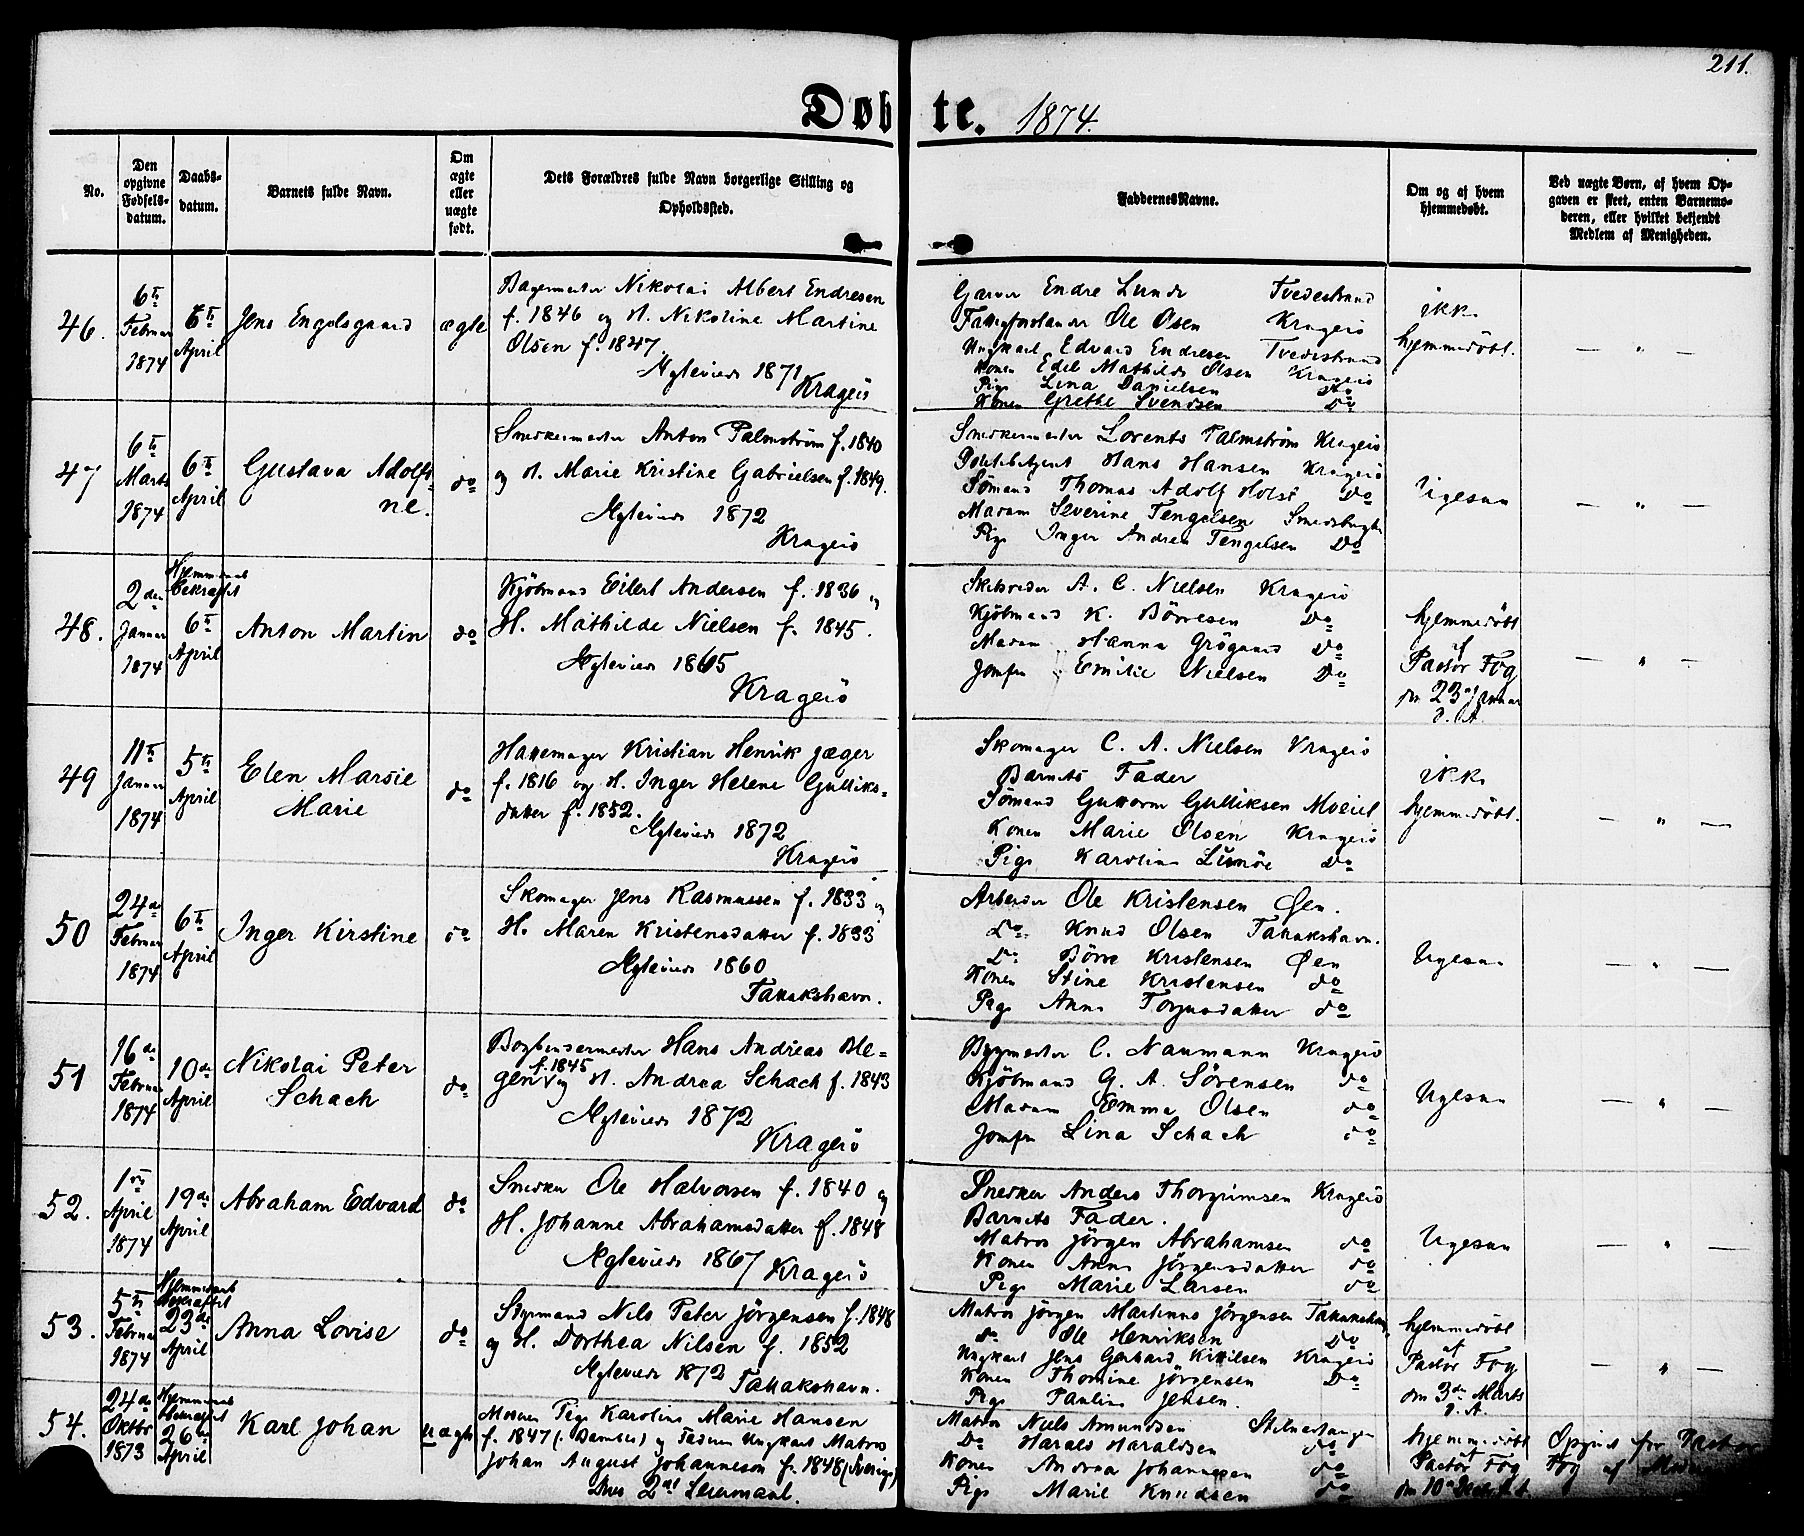 211.
Døbte. 1874.
No.
Den opgivne Fødsels-datum.
Daabs-datum.
Barnets fulde Navn.
Om ægte eller uægte født.
Dets Forældres fulde Navn borgerlige Stilling og Opholdssted.
Faddernes Navne.
Om og af hvem hjemmedøbt.
Ved uægte Børn, af hvem Op-gaven er skeet, enten Barnemo-deren, eller hvilket bekjendt Medlem af Menigheden.
46.
6te Februar 1874
6te April
Jens Engelsgaard
ægte
Bagermester Nikolai Albert Endresen
f. 1846 og H. Nikoline Martine
Olsen f. 1847.
Ægteviede 1871
Kragerö
Garver Endre Lunde Tvedestrand
Ole Olsen Kragerö
Ungkarl Edvard Endresen Tvedestrand
Konen Edel Mathilde Olsen Kragerö
Pige Lina Danielsen Do
Konen Grethe Svendsen Do
ikke
hjemmedöbt.
— " —
47
6te Marts 1874
6te April
Gustava Adolfi-
ne.
do
Snedkermester Anton Palmström f. 1840
og H. Marie Kristine Gabrielsen f. 1849.
Ægteviede 1872
Kragerö
Snedkermester Lorents Palmström Kragerö
Politibetjent Hans Hansen Kragerö
Sömand Thomas Adolf Holst Do
Madam Severine Tengelsen
Pige Inger Andrea Tengelsen Do
Ligesaa
— " —
48.
2den Januar 1874
Hjemmedaab bekræftet
6te April
Anton Martin
do
Kjöbmand Eilert Andersen f. 1836 og
H. Mathilde Nielsen f. 1845.
Ægteviede 1865
Kragerö
Skibsreder A. C. Nielsen Kragerö
Kjöbmand K. Börresen Do
Madam Hanna Grögaard Do
Jomfru Emilie Nielsen Do
hjemmedöbt
af
Pastor Fog
den 23de Januar
d. A.
— " —
49
11te Januar 1874
5te April
Elen Marsie
Marie
do
Hattemager Kristian Henrik Jæger
f. 1816 og H. Inger Helene Gulliks-
datter f. 1852.
Ægteviede 1872
Kragerö
Skomager C. A. Nielsen Kragerö
Barnets Fader
Sömand Guttorm Gulliksen
Konen Marie Olsen Kragerö
Pige Karoline Lindöe Do
ikke
hjemmedöbt.
— " —
50
24de Februar 1874
6te April
Inger Kirstine
do
Skomager Jens Rasmussen f. 1833 og
H. Maren Kristensdatter f. 1833
Ægteviede 1860
Tatakshavn.
Arbeider Ole Kristensen Öen.
Do Knud Olsen Tatakshavn.
Do Börre Kristensen Öen
Konen Stine Kristensen do
Pige Anne Torjusdatter do
Ligesaa
— " —
51
16de Februar 1874
10de April
Nikolai Peter
Schach
do
Bogbindermester Hans Andreas Ble-
f. 1845
gen og H. Andrea Schach f. 1843
Ægteviede 1872
Kragerö
Bygmester C. Naumann Kragerö
Kjöbmand G. A. Sörensen do
Madam Emma Olsen do
Jomfru Lina Schach do
Ligesaa
— " —
52.
1ste April 1874
19de April
Abraham Edvard
do
Snedker Ole Halvorsen f. 1840 og
H. Johanne Abrahamsdatter f. 1848
Ægteviede 1867
Kragerö
Snedker Anders Thorgrimsen Kragerö
Barnets Fader.
Matros Jörgen Abrahamsen do
Konen Anne Jörgensdatter do
Pige Marie Larsen do
Ligesaa
— " —
53.
5te Februar 1874
Hjemmedaab bekræftet
23de April
Anna Lovise
do
Styrmand Nils Peter Jörgensen f. 1848
og H. Dorthea Nilsen f. 1852
Ægteviede 1872
Tatakshavn.
Matros Jörgen Martinus Jörgensen
Do Ole Henriksen Do
Ungkarl Jens Gerhard Kittilsen Kragerö
Konen Thomine Jörgensen Do
Pige Pauline Jensen.
hjemmedöbt
af
Pastor Fog
den 3de Marts
d. A.
— " —
54.
24de Oktbr 1873
Hjemmedaab bekræftet
26de April
Karl Johan
uægte
Moderen Pige Karoline Marie Hansen
f. 1847 (: Bamble:) og Faderen Ungkarl Matros
Johan August Johanneson f. 1848 (Sverige)
2det Leiermaal.
Matros Niels Amundsen
Do Harald Haraldsen do
Konen Andrea Johannesen do
Pige Marie Knudsen do
hjemmedöbt
Pastor Fog
den 10de
Opgivet for Pastor
Fog af